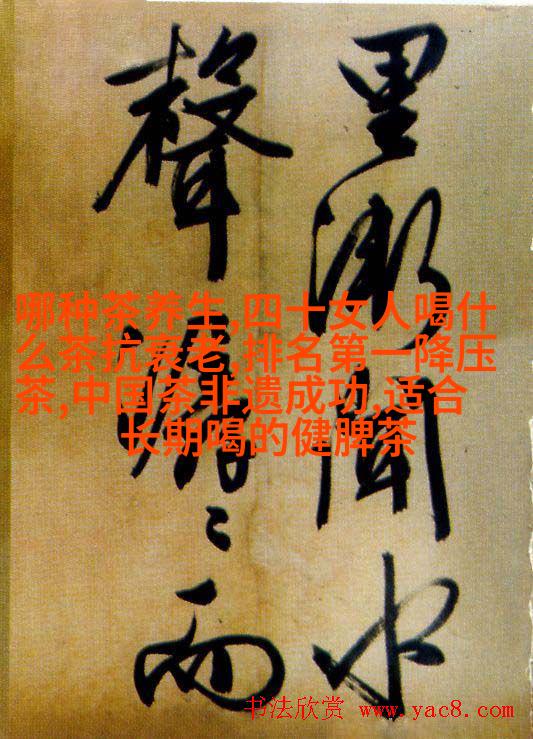 里漸聞水
聲潺〻而
哪种茶养生,四十女人喝什
么茶抗衰老,排名第一降压
茶,中国茶非遗成功,适合
长期喝的健脾茶
书法欣赏 www.yac8.com